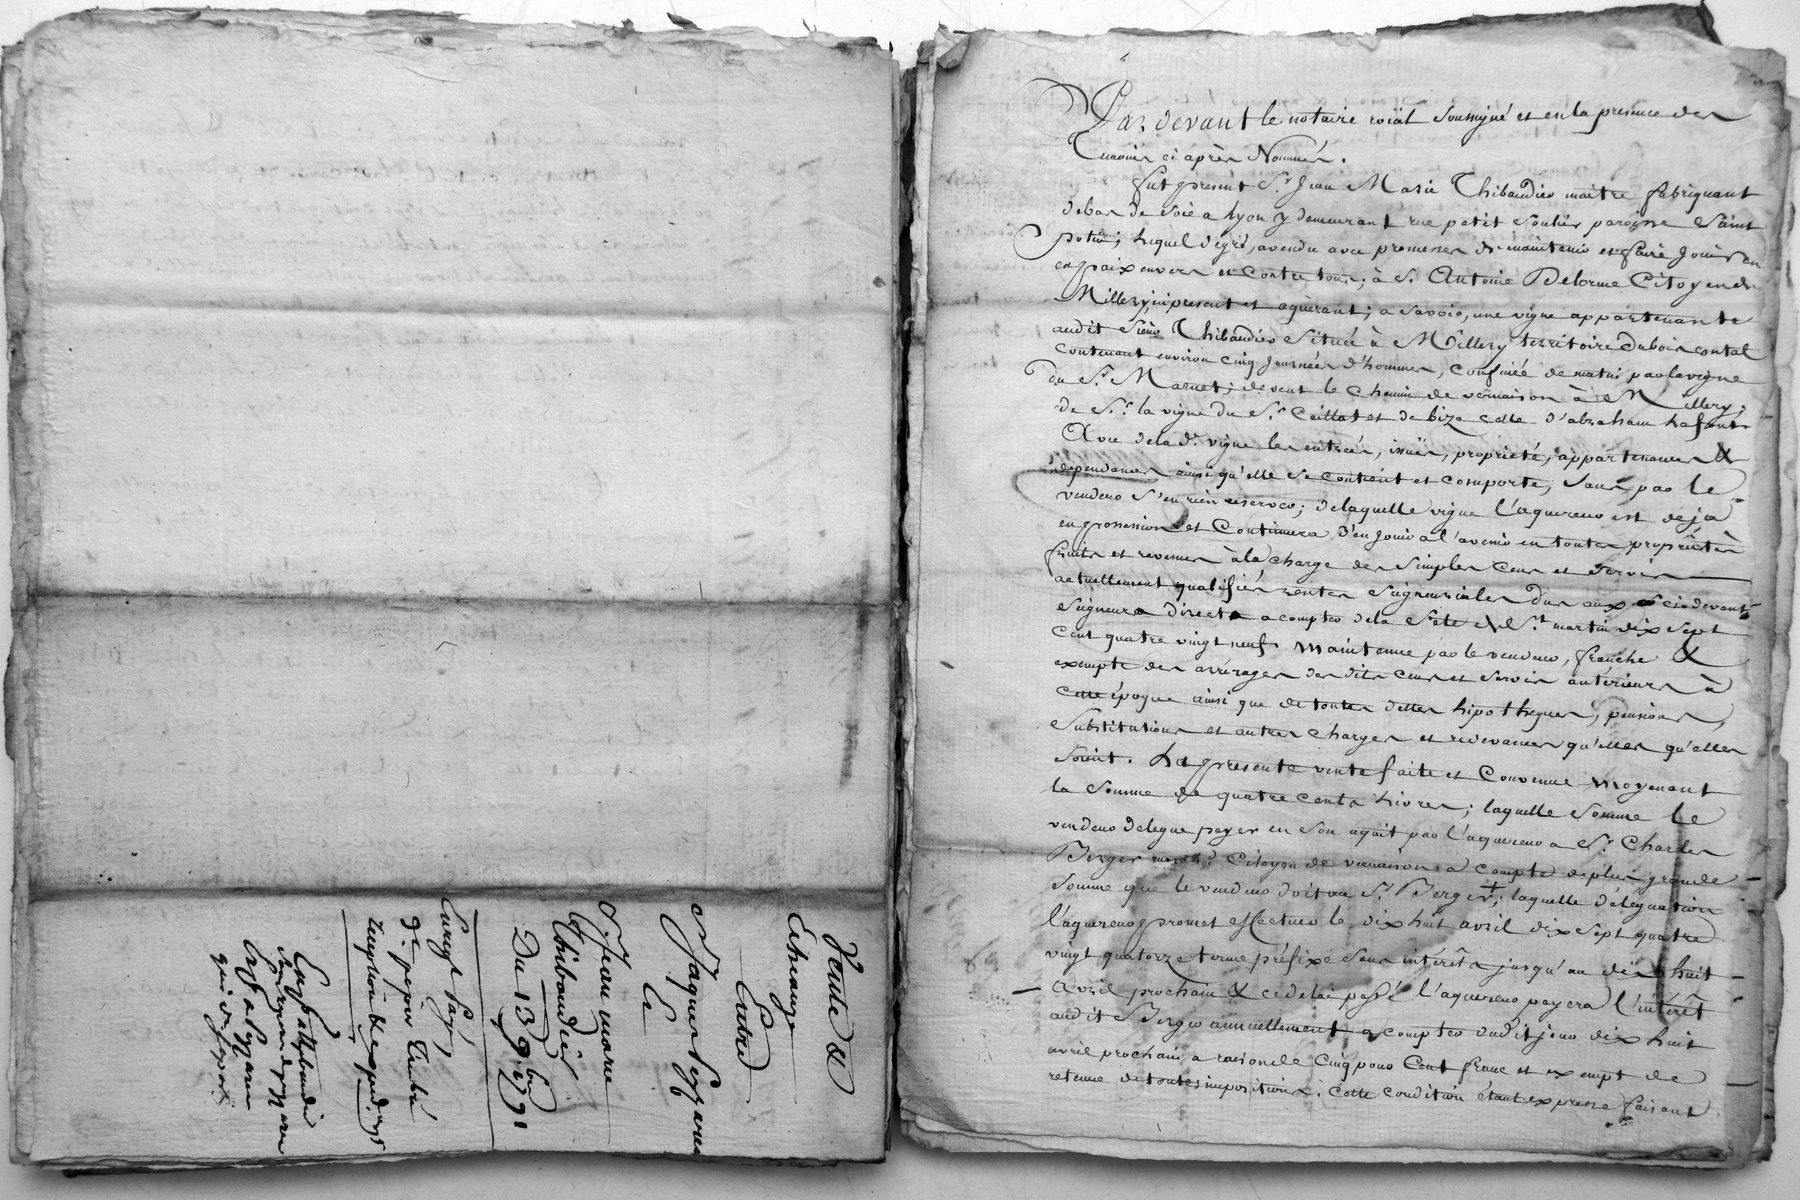 Vente &
Echange
Entre
Jaques
&
Jean marie
Thibaudier
Du 13 9bre 1791
de papier timbré
Par devant le notaire roïal soussigné et en la presence des
temoins ci après Nommés.
fut present Sr. Jean Marie Thibaudier maitre fabriquant
de bas de soie a Lyon y demeurant rue petit soulier paroisse Saint
potin; lequel degré, a vendu avec promesse de maintenir et faire jouir en
en paix envers et contre tous; à Sr. Antoine Delorme Citoyen de
Millery, ici present et aqùerant; a savoir, une vigne appartenante
audit Sieur Thibaudier située à Millery territoire du bois contal
contenant environ cinq journées d'hommes, confinée de matin par la vigne
du Sr. Marnet; de vent le chemin de vernaison à Millery;
de Sr. la vigne du Sr. Caillat et de bize celle d'abraham Lafont
Avec de la de. vigne les entrées, issües, propriété, appartenances &
dépendances ainsi qu'elle se contient et comporte, sans par le
vendeur s'en rien reserver; de laquelle vigne l'aquereur est deja
en possession et Continuera d'en jouir a l'avenir en toutes propriétés
fruits et revenus à la charge des simples cens et servis
actuellement qualifiés rentes seigneuriales dus aux ci devant
seigneurs directs a compter de la fete de St. martin dix sept
cent quatre vingt neuf maintenue par le vendeur, franche &
exempte des arrérages des dits cens et servis antérieurs à
cette époque ainsi que de toutes dettes hipotheques, pensions,
substitutions et autres charges et redevances qu'elles qu'elles
soient. La presente vente faite et Convenue moyenant
la somme de quatre cents Livres; laquelle somme le
vendeur delegue payer en son aquit par l'aquereur a Sr. Charles
Berger Citoyen de vernaison a compte de plus grande
somme que le vendeur doit au Sr. Berger +; laquelle délégation
l'aquereur promet effectuer le dix huit avril dix sept quatre
vingt quatorze terme préfixe sans intérêts jusqu'au dix huit
avril prochain & ce delai passé l'aquereur payera l'intérêt
audit Berger annuellement a compter dudit jour dix huit
avril prochain a raison de Cinq pour Cent franc et exempt de
retenue de toutes impositions; cette condition étant expresse faisant